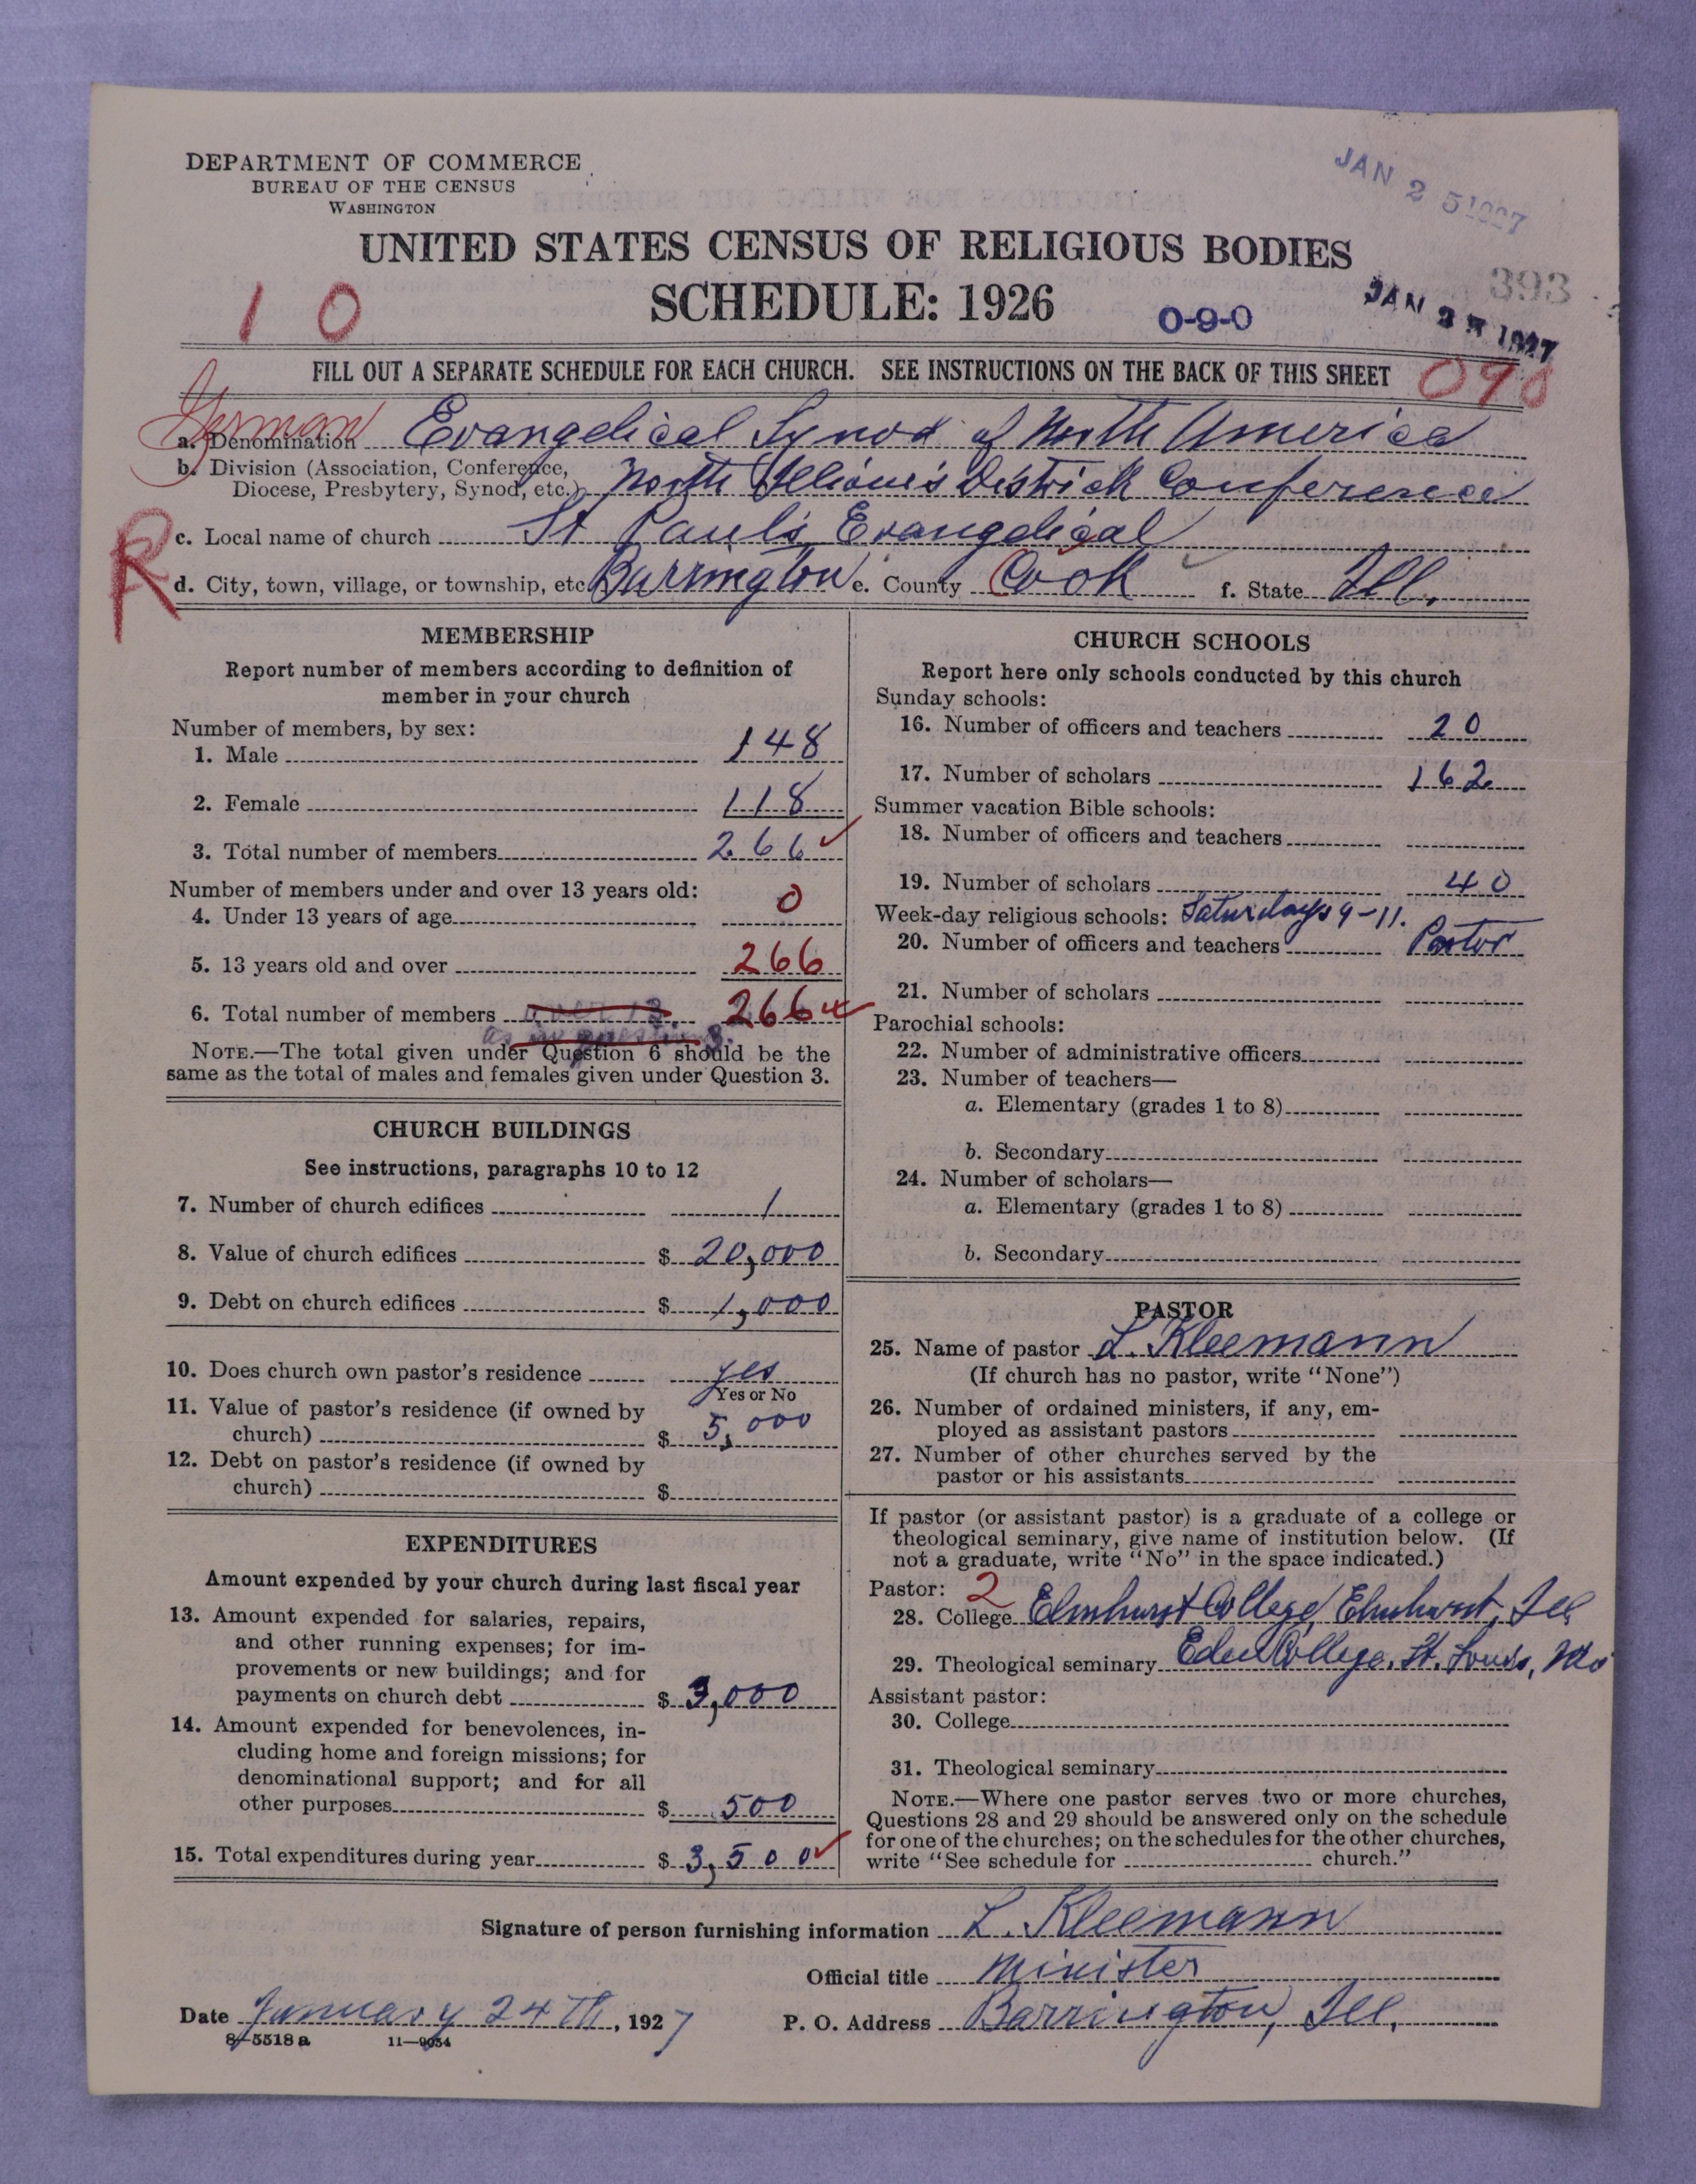 DEPARTMENT OF COMMERCE
BUREAU OF THE CENSUS
WASHINGTON
JAN 2 5 1927
UNITED STATES CENSUS OF RELIGIOUS BODIES
393
SCHEDULE: 1926
1 0
0-9-0
JAN 2 1927
FILL OUT A SEPARATE SCHEDULE FOR EACH CHURCH. SEE INSTRUCTIONS ON THE BACK OF THIS SHEET
090
German
a. Denomination Evangelical Synod of North America
b. Division (Association, Conference,
Diocese, Presbytery, Synod, etc.) North Illinois District Conference
R
c. Local name of church St Paul's Evangelical
d. City, town, village, or township, etc. Barrington e. County Cook f. State Ill.
MEMBERSHIP
Report number of members according to definition of
member in your church
Number of members, by sex:
1. Male 148
2. Female 118
3. Total number of members 266
Number of members under and over 13 years old:
4. Under 13 years of age 0
5. 13 years old and over 266
6. Total number of members over 13. 266
as in question 3.
NOTE.—The total given under Question 6 should be the
same as the total of males and females given under Question 3.
CHURCH BUILDINGS
See instructions, paragraphs 10 to 12
7. Number of church edifices 1
8. Value of church edifices $ 20,000
9. Debt on church edifices $ 1,000
10. Does church own pastor's residence yes
Yes or No
11. Value of pastor's residence (if owned by
church) $ 5,000
12. Debt on pastor's residence (if owned by
church) $
EXPENDITURES
Amount expended by your church during last fiscal year
13. Amount expended for salaries, repairs,
and other running expenses; for im-
provements or new buildings; and for
payments on church debt $ 3,000
14. Amount expended for benevolences, in-
cluding home and foreign missions; for
denominational support; and for all
other purposes $ 500
15. Total expenditures during year $ 3,500
CHURCH SCHOOLS
Report here only schools conducted by this church
Sunday schools:
16. Number of officers and teachers 20
17. Number of scholars 162
Summer vacation Bible schools:
18. Number of officers and teachers
19. Number of scholars 40
Week-day religious schools: Saturdays 9-11.
20. Number of officers and teachers Pastor
21. Number of scholars
Parochial schools:
22. Number of administrative officers
23. Number of teachers—
a. Elementary (grades 1 to 8)
b. Secondary
24. Number of scholars—
a. Elementary (grades 1 to 8)
b. Secondary
PASTOR
25. Name of pastor L. Kleemann
(If church has no pastor, write "None")
26. Number of ordained ministers, if any, em-
ployed as assistant pastors
27. Number of other churches served by the
pastor or his assistants
If pastor (or assistant pastor) is a graduate of a college or
theological seminary, give name of institution below. (If
not a graduate, write "No" in the space indicated.)
Pastor: 2
28. College Elmhurst College, Elmhurst, Ill
29. Theological seminary Eden College, St. Louis, Mo
Assistant pastor:
30. College
31. Theological seminary
NOTE.—Where one pastor serves two or more churches,
Questions 28 and 29 should be answered only on the schedule
for one of the churches; on the schedules for the other churches,
write "See schedule for church."
Signature of person furnishing information L. Kleemann
Official title Minister
Date January 24th, 1927 P. O. Address Barrington, Ill.
8-5518 a 11-9054